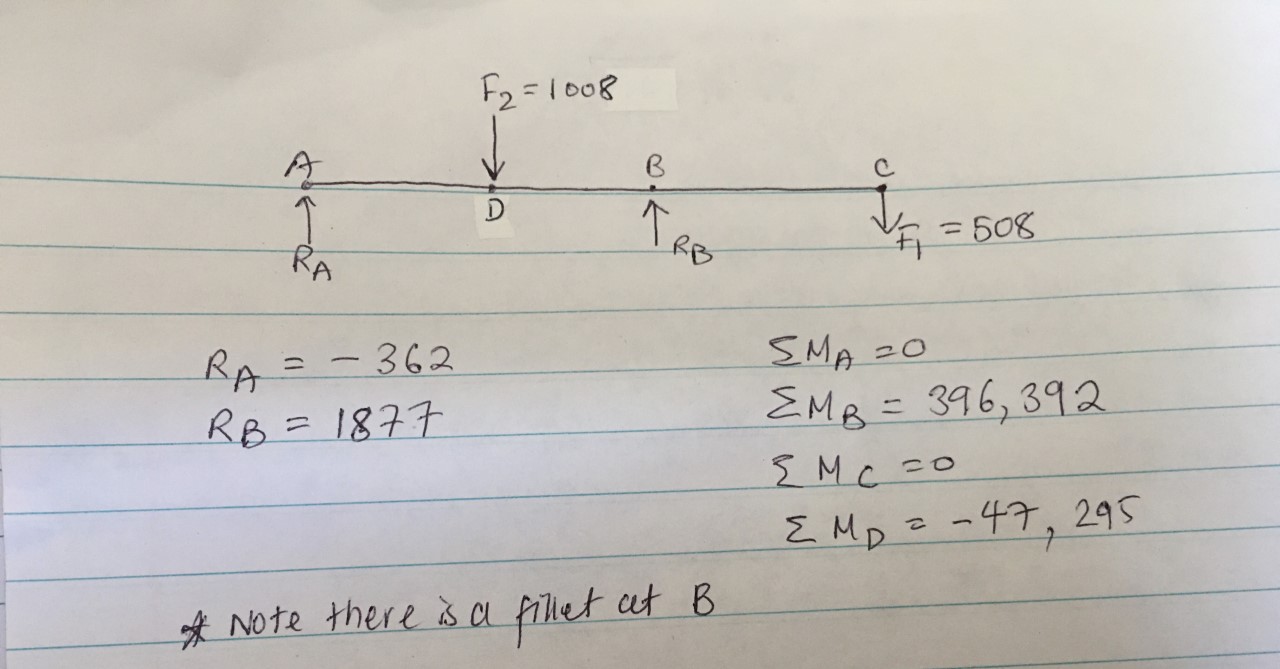 F2 = 1008
A
B
C
D
RA
RB
F1 = 508
RA = - 362
RB = 1877
ΣMA = 0
ΣMB = 396,392
ΣMC = 0
ΣMD = -47,295
* Note there is a fillet at B